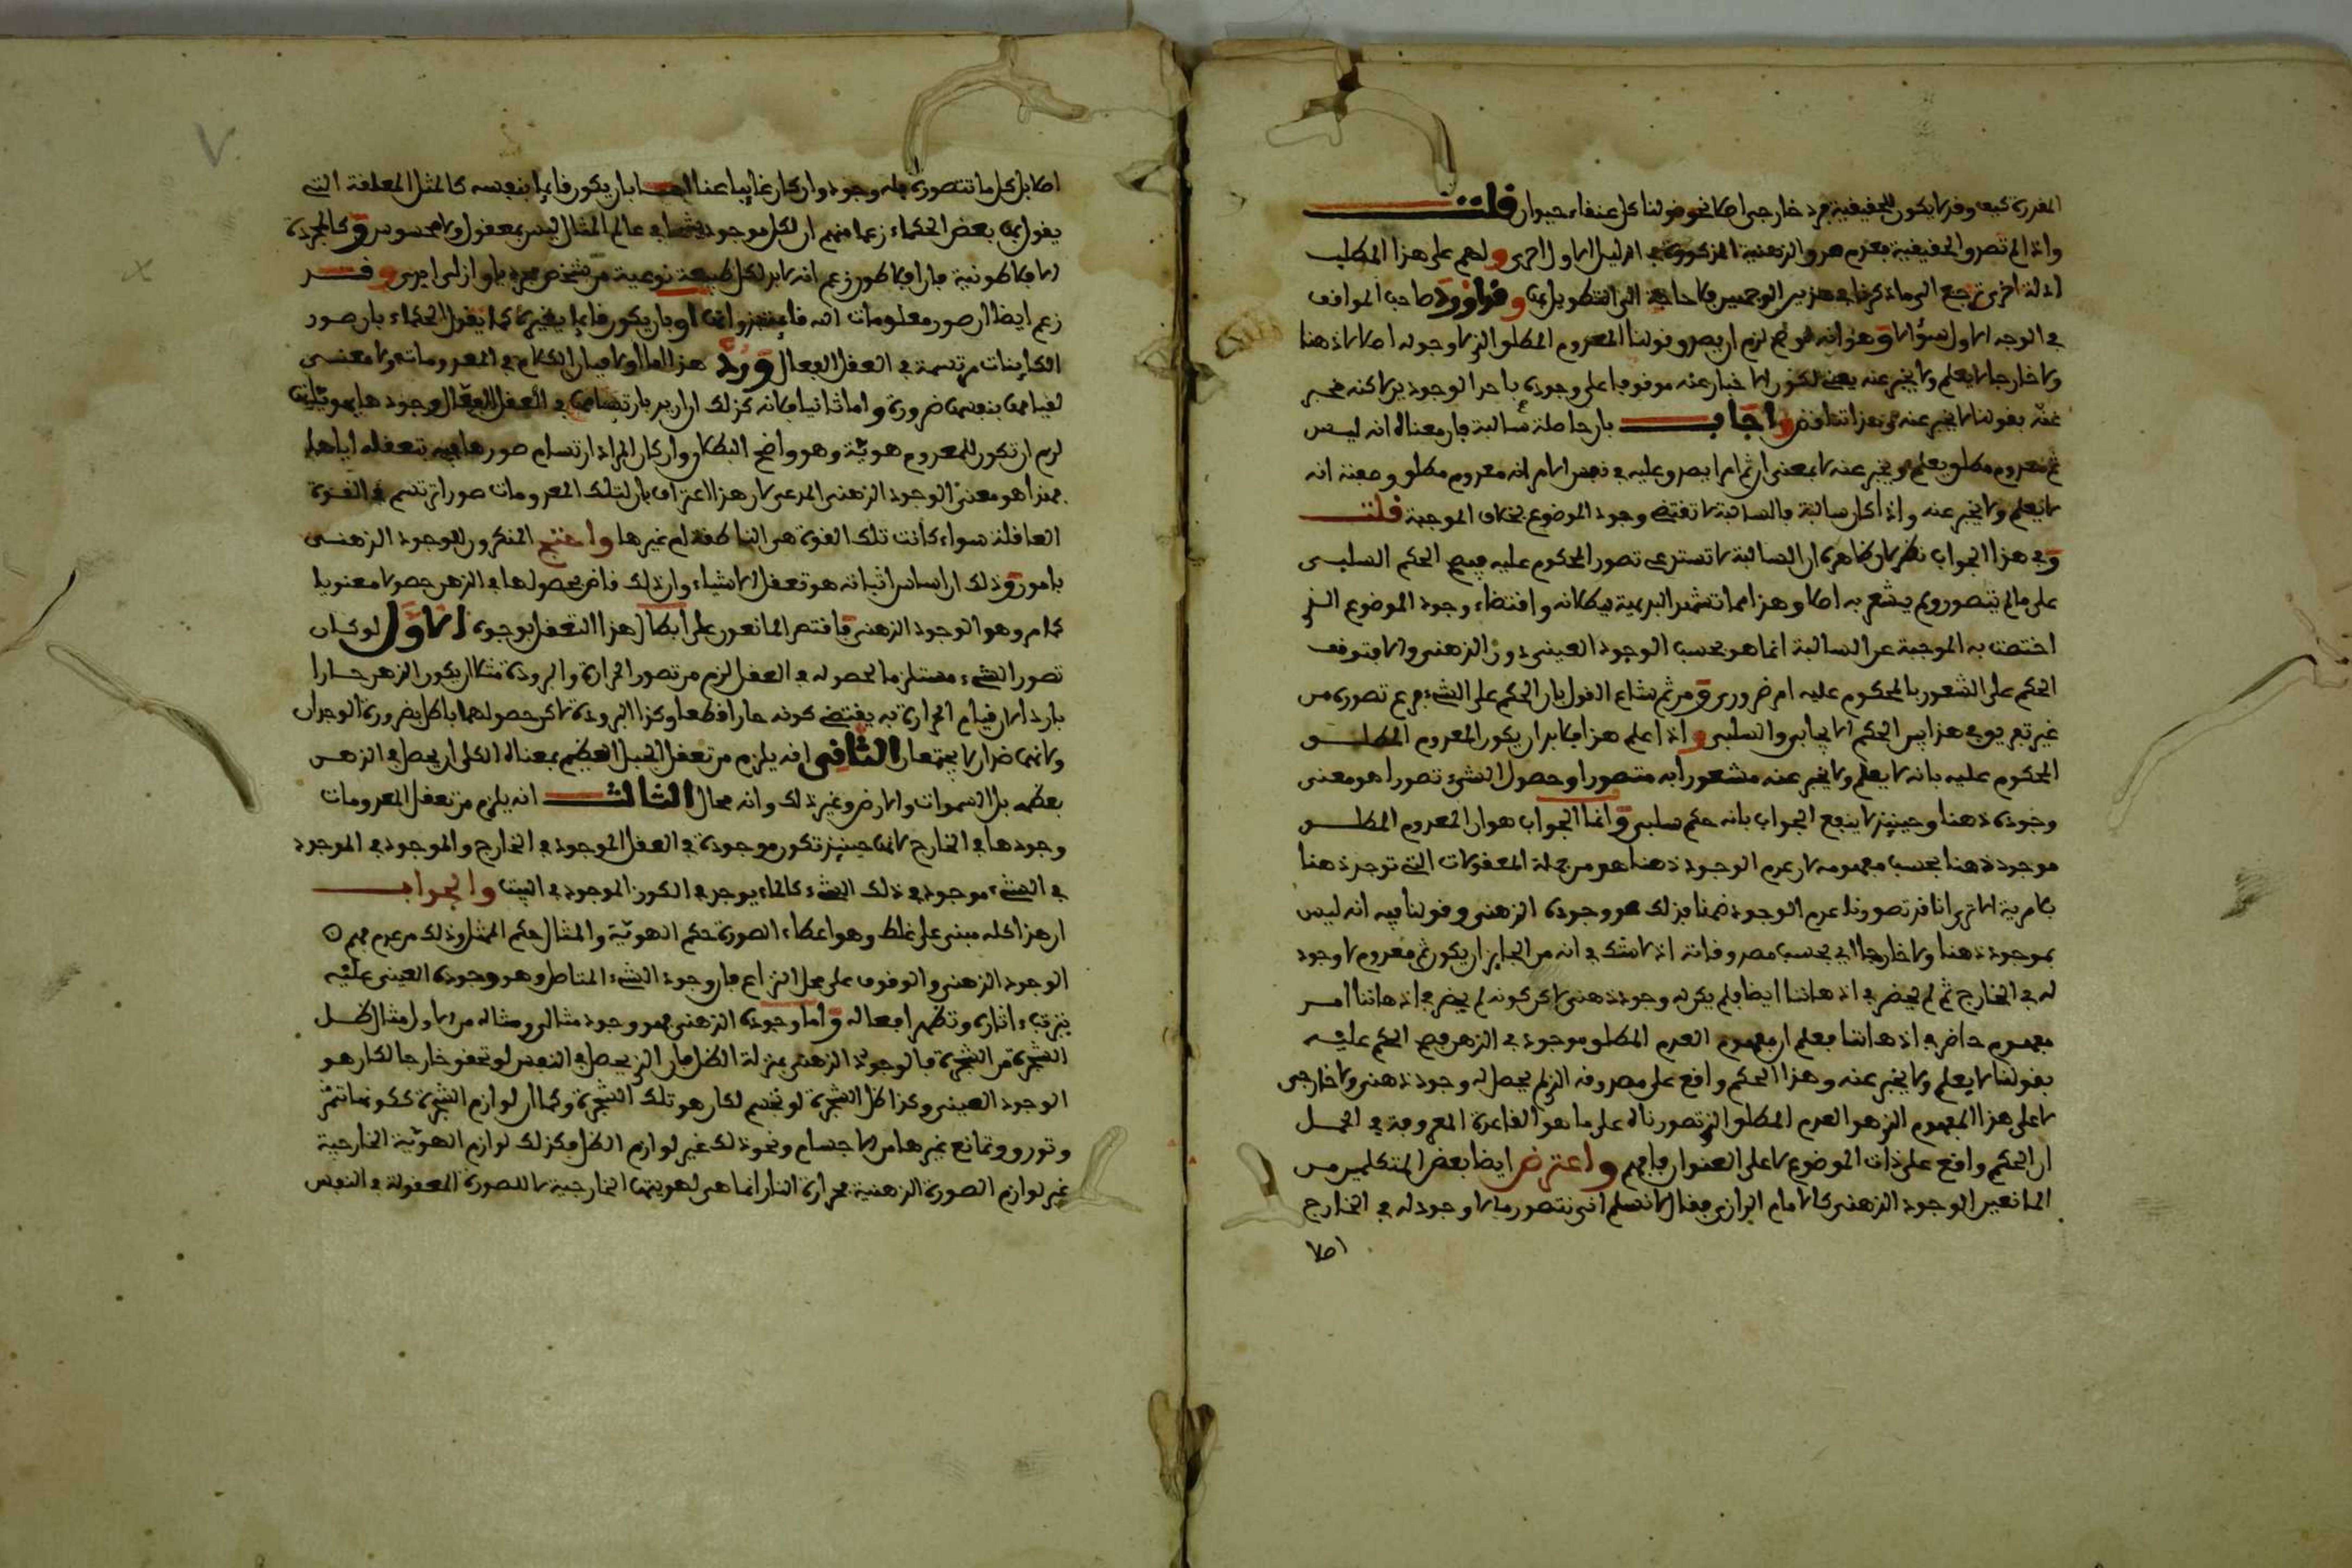 المقررة كيف وقد لا يكون للحقيقية فرد خارجي اصلا نحو قولنا كل عنقاء حيوان قلت
واذا لم تصدق الحقيقية بعدم صدق الذهنية المذكورة في الدليل الاول احرى ولهم على هذا المطلب
ادلة اخرى ترجع الى ما ذكرنا في هذين الوجهين فلا حاجة الى التطويل بها وقد اورد صاحب المواقف
في الوجه الاول سؤالا وهو انه لو صح لزم ان يصدق قولنا المعدوم المطلق الذي لا وجود له اصلا لا ذهنا
ولا خارجا لا يعلم ولا يخبر عنه يعني لكون الاخبار عنه موقوفا على وجوده باحد الوجودين لاكنه مخبر
عنه بقولنا لا يخبر عنه وهذا تناقض واجاب بان حاصله سالبة فان معناه انه ليس
ثم معدوم مطلق يعلم ويخبر عنه لا بمعنى ان ثم امرا يصدق عليه في نفس الامر انه معدوم مطلق وصفته انه
لا يعلم ولا يخبر عنه واذا كان سالبة فالسالبة لا تقتضي وجود الموضوع بخلاف الموجبة قلت
وفي هذا الجواب نظر لان ظاهره ان السالبة لا تستدعي تصور المحكوم عليه فيصح الحكم السلبي
على ما لم يتصور ولم يشعر به اصلا وهذا مما تشهد البديهية ببطلانه واقتضاء وجود الموضوع الذي
اختصت به الموجبة عن السالبة انما هو بحسب الوجود العيني دون الذهني والا فتوقف
الحكم على الشعور بالمحكوم عليه امر ضروري ومن ثم شاع القول بان الحكم على الشيء فرع تصوره من
غير تفريق في هذا بين الحكم الايجابي والسلبي واذا علم هذا فلا بد ان يكون المعدوم المطلق
المحكوم عليه بانه لا يعلم ولا يخبر عنه مشعورا به متصورا وحصول الشيء تصورا هو معنى
وجوده ذهنا وحينئذ لا ينفع الجواب بانه حكم سلبي وانما الجواب هو ان المعدوم المطلق
موجود ذهنا بحسب مفهومه لان عدم الوجود ذهنا هو من جملة المعقولات التي توجد ذهنا
بلا مرية الا ترى انا قد تصورنا عدم الوجود ضمنا فذلك هو وجوده الذهني وقولنا فيه انه ليس
بموجود ذهنا ولا خارجا اي بحسب مصدوقاته اذ لا شك في انه من الجايز ان يكون ثم معدوم لا وجود
له في الخارج ثم لم يحضر في اذهاننا ايضا ولم يكن له وجود ذهني لاكن كونه لم يحضر في اذهاننا امر
مفهوم حاضر في اذهاننا فعلم ان مفهوم العدم المطلق موجود في الذهن فصح الحكم عليه
بقولنا لا يعلم ولا يخبر عنه وهذا الحكم واقع على مصدوقه الذي لم يحصل له وجود ذهني ولا خارجي
لا على هذا المفهوم الذي هو العدم المطلق الذي تصورناه على ما هو القاعدة المعروفة في الحمل
ان الحكم واقع على ذات الموضوع لا على العنوان فافهم واعترض ايضا بعض المتكلمين من
المانعين الوجود الذهني كالامام الرازي فقال لا نسلم انا نتصور ما لا وجود له في الخارج
اصلا
اصلا بل كل ما نتصوره فله وجود وان كان غايبا عنا اما بان يكون قايما بنفسه كالمثل المعلقة التي
يقول بها بعض الحكماء زعما منهم ان لكل موجود شبحا في عالم المثال ليس بمعقول ولا محسوس وكالمجردة
الافلاطونية فان افلاطون زعم انه لا بد لكل طبيعة نوعية من شخص مجرد باق ازلي ابدي وقد
زعم ايضا ان صور معلومات الله قايمة بذواتها او بان يكون قايما بغيره كما يقول الحكماء بان صور
الكاينات مرتسمة في العقل الفعال ورد هذا اما اولا فبان الكلام في المعدومات ولا معنى
لقيامها بنفسها ضرورة واما ثانيا فلانه كذلك ان اريد بارتسامها في العقل الفعال وجودها بهوياتها
لزم ان تكون للمعدوم هوية وهو واضح البطلان وان كان المراد ارتسام صورها فيه بتعقله اياها
فهذا هو معنى الوجود الذهني المدعى لان هذا اعتراف بان لتلك المعدومات صورا ترتسم في القوة
العاقلة سواء كانت تلك القوة هي الناطقة ام غيرها واحتج المنكرون للوجود الذهني
بامور وذلك ان اساس اثباته هو تعقل الاشياء وان ذلك قاض بحصولها في الذهن حصولا معنويا
كما مر وهو الوجود الذهني فاقتصر المانعون على ابطال هذا التعقل بوجوه الاول لو كان
تصور الشيء مستلزما لحصوله في العقل لزم من تصور الحرارة والبرودة مثلا ان يكون الذهن حارا
باردا لان قيام الحرارة به يقتضي كونه حارا قطعا وكذا البرودة لاكن حصولهما باطل بضرورة الوجدان
ولانهما ضدان لا يجتمعان الثاني انه يلزم من تعقل الجبل العظيم بمعناه الكلي ان يحصل في الذهن
بعظمه بل السموات والارض وغير ذلك وانه محال الثالث انه يلزم من تعقل المعدومات
وجودها في الخارج لانها حينئذ تكون موجودة في العقل الموجود في الخارج والموجود في الموجود
في الشيء موجود في ذلك الشيء كالماء يوجد في الكوز الموجود في البيت والجواب
ان هذا كله مبني على غلط وهو اعطاء الصورة حكم الهوية والمثال حكم الممثل وذلك من عدم فهم
الوجود الذهني والوقوف على محل النزاع فان وجود الشيء المتاصل وهو وجوده العيني عليه
يترتب ءاثاره وتظهر افعاله واما وجوده الذهني فهو وجود مثالي ومثاله من الاول مثال ظل
الشجرة من الشجرة فالوجود الذهني بمنزلة الظل فان الذي يحصل في النفس لو تحقق خارجا لكان هو
الوجود العيني وكذا ظل الشجرة لو تجسم لكان هو تلك الشجرة وكما ان لوازم الشجرة ككونها تثمر
وتورق وتمانع غيرها من الاجسام ونحو ذلك غير لوازم الظل فكذلك لوازم الهوية الخارجية
غير لوازم الصورة الذهنية فحرارة النار انما هي لهويتها الخارجية لا للصورة المعقولة في النفس